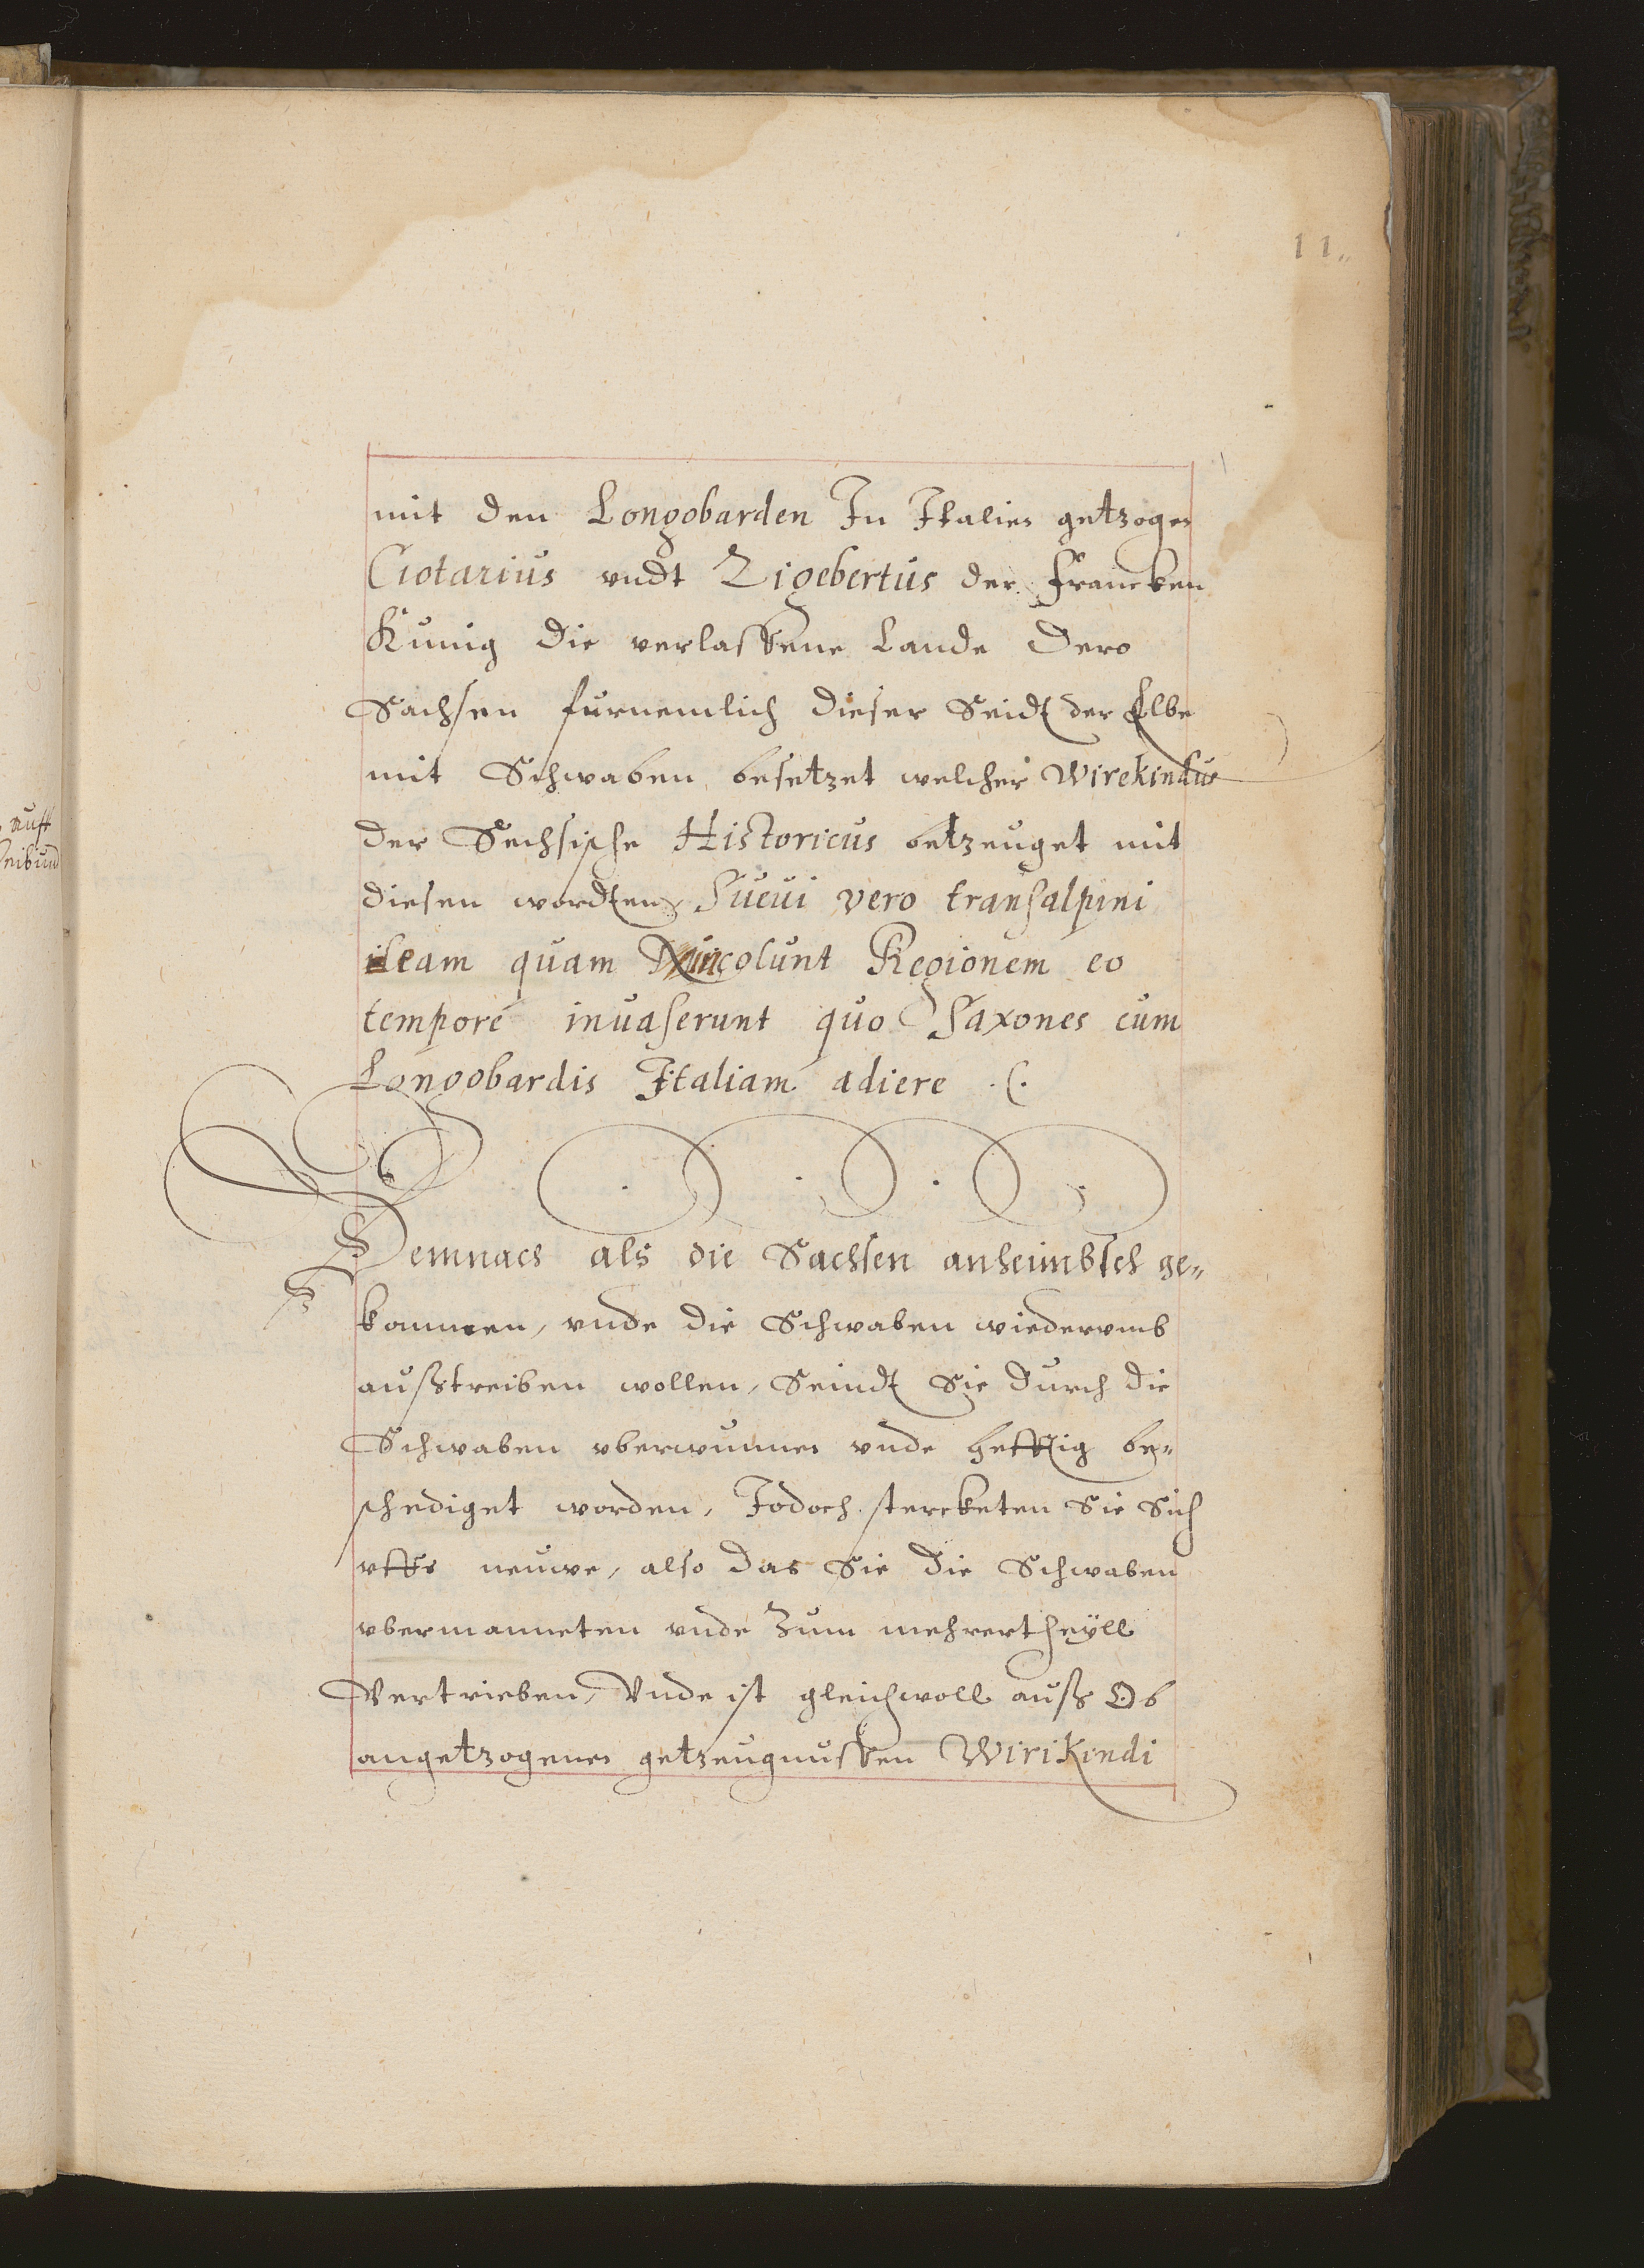 11
auff
mit den Longobarden In Italien getzogen
Clotarius vndt Zigebertus der Francken
Kunig die verlassene Lande Dero
Sachsen furnemlich dieser Seidt der Elbe
mit Schwaben besetzet welcher Wirekindus
der Sechsische Historicus betzeuget mit
diesen wordten, Suevi vero transalpini
eam quam incolunt Regionem eo
tempore invaserunt quo Saxones cum
Longobardis Italiam adiere .(.
Demnach als die Sachsen anheimbsch ge„
kommen, vnde die Schwaben wiedervmb
außtreiben wollen, Seindt Sie durch die
Schwaben vberwunnen vnde hefftig be„
schediget worden, Jodoch stercketen Sie Sich
vffs neuwe, also das Sie die Schwaben
vbermanneten vnde Zum mehrertheyll
Vertrieben, Vnde ist gleichwoll auß Ob
angetzogenen getzeugnussen Wirikindi